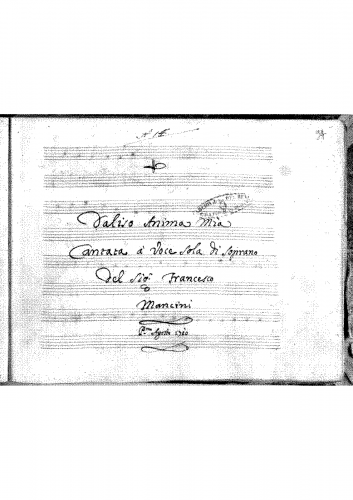 34
Daliso Anima Mia
Cantata à Voce Sola di Soprano
Del Sigr Francesco
Mancini
Pmo Agosto 1710